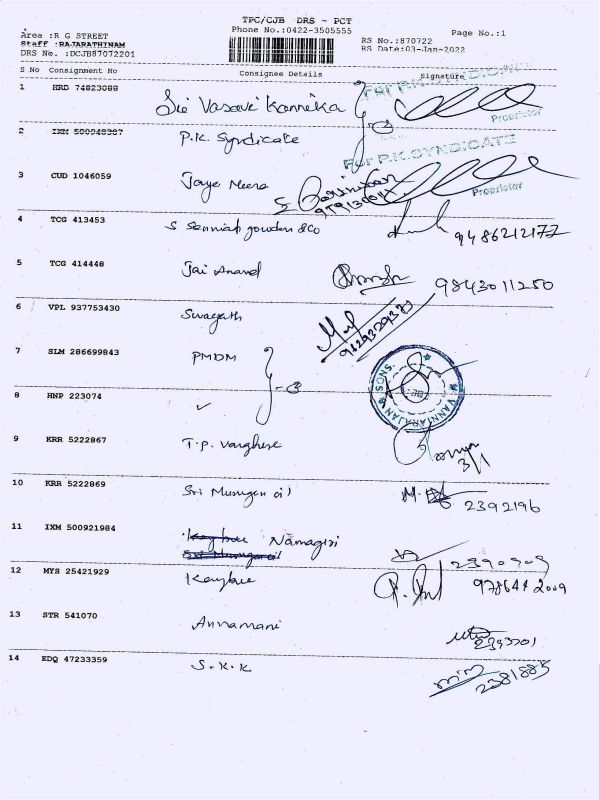 TPC/CJB DRS - PCT
Area :R G STREET Phone No.:0422-3505555 Page No.:1
Staff :RAJARATHINAM RS No.:870722
DRS No. :DCJB87072201 RS Date:03-Jan-2022
S No Consignment No Consignee Details Signature
1 HRD 74823088 Sri Vasavi Kannika
Proprietor
2 IXM P.K. Syndicate
For P.K.SYNDICATE
3 CUD 1046059 Jaya Meera
Proprietor
4 TCG 413453 S Senniah gounden &co 9486212177
5 TCG 414448 Jai Anand 9843011250
6 VPL 937753430 Swagath
7 SLM 286699843 PMDM
VANNIARAJAN & SONS
8 HNP 223074 ✓
9 KRR 5222867 T.P. Varghese
3/1
10 KRR 5222869 Sri Murugan oil 2392196
11 IXM 500921984 Namagiri
12 MYS 25421929 Kaybee
13 STR 541070 Annamani
14 EDQ 47233359 S.K.K 2381885